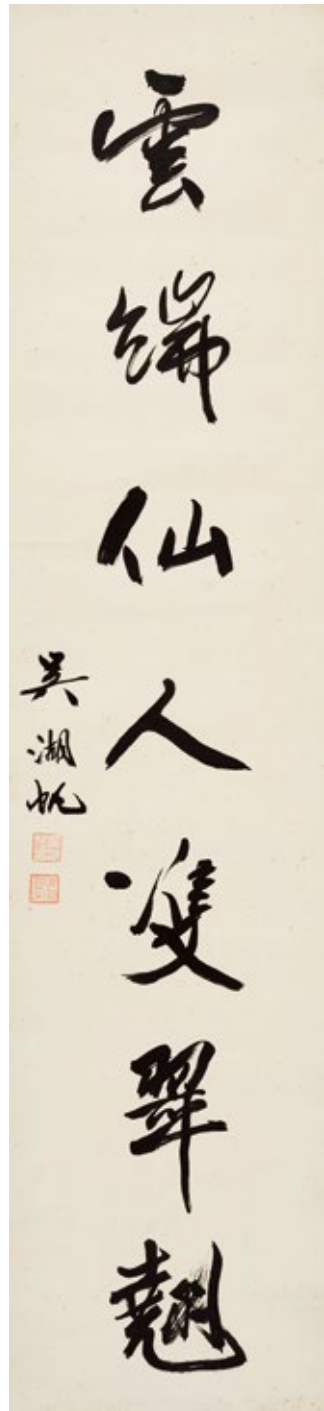 雲端仙人雙翠翹
吳湖帆